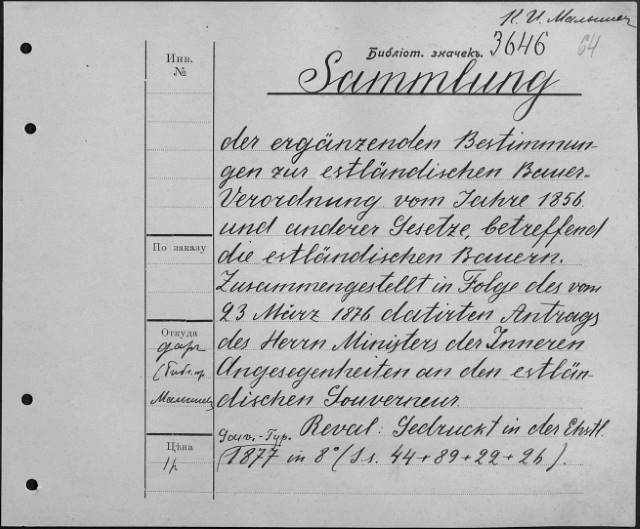 К. И. Малышев
Библіот. значекъ. 3646 64
Инв.
№
Sammlung
der ergänzenden Bestimmun-
gen zur estländischen Bauer-
Verordnung vom Jahre 1856
und anderer Gesetze, betreffend
die estländischen Bauern.
Zusammengestellt in Folge des vom
23 März 1876 datirten Antrags
des Herrn Ministers der Inneren
Angesegenheiten an den estlän-
dischen Gouverneur.
Reval: Gedruckt in der Ehstl.
Gouv.-Typ.
1877 in 8° (Ss. 44+89+22+26).
По заказу
Откуда
даръ
(Библ. пр.
Малышев
Цѣна
1р